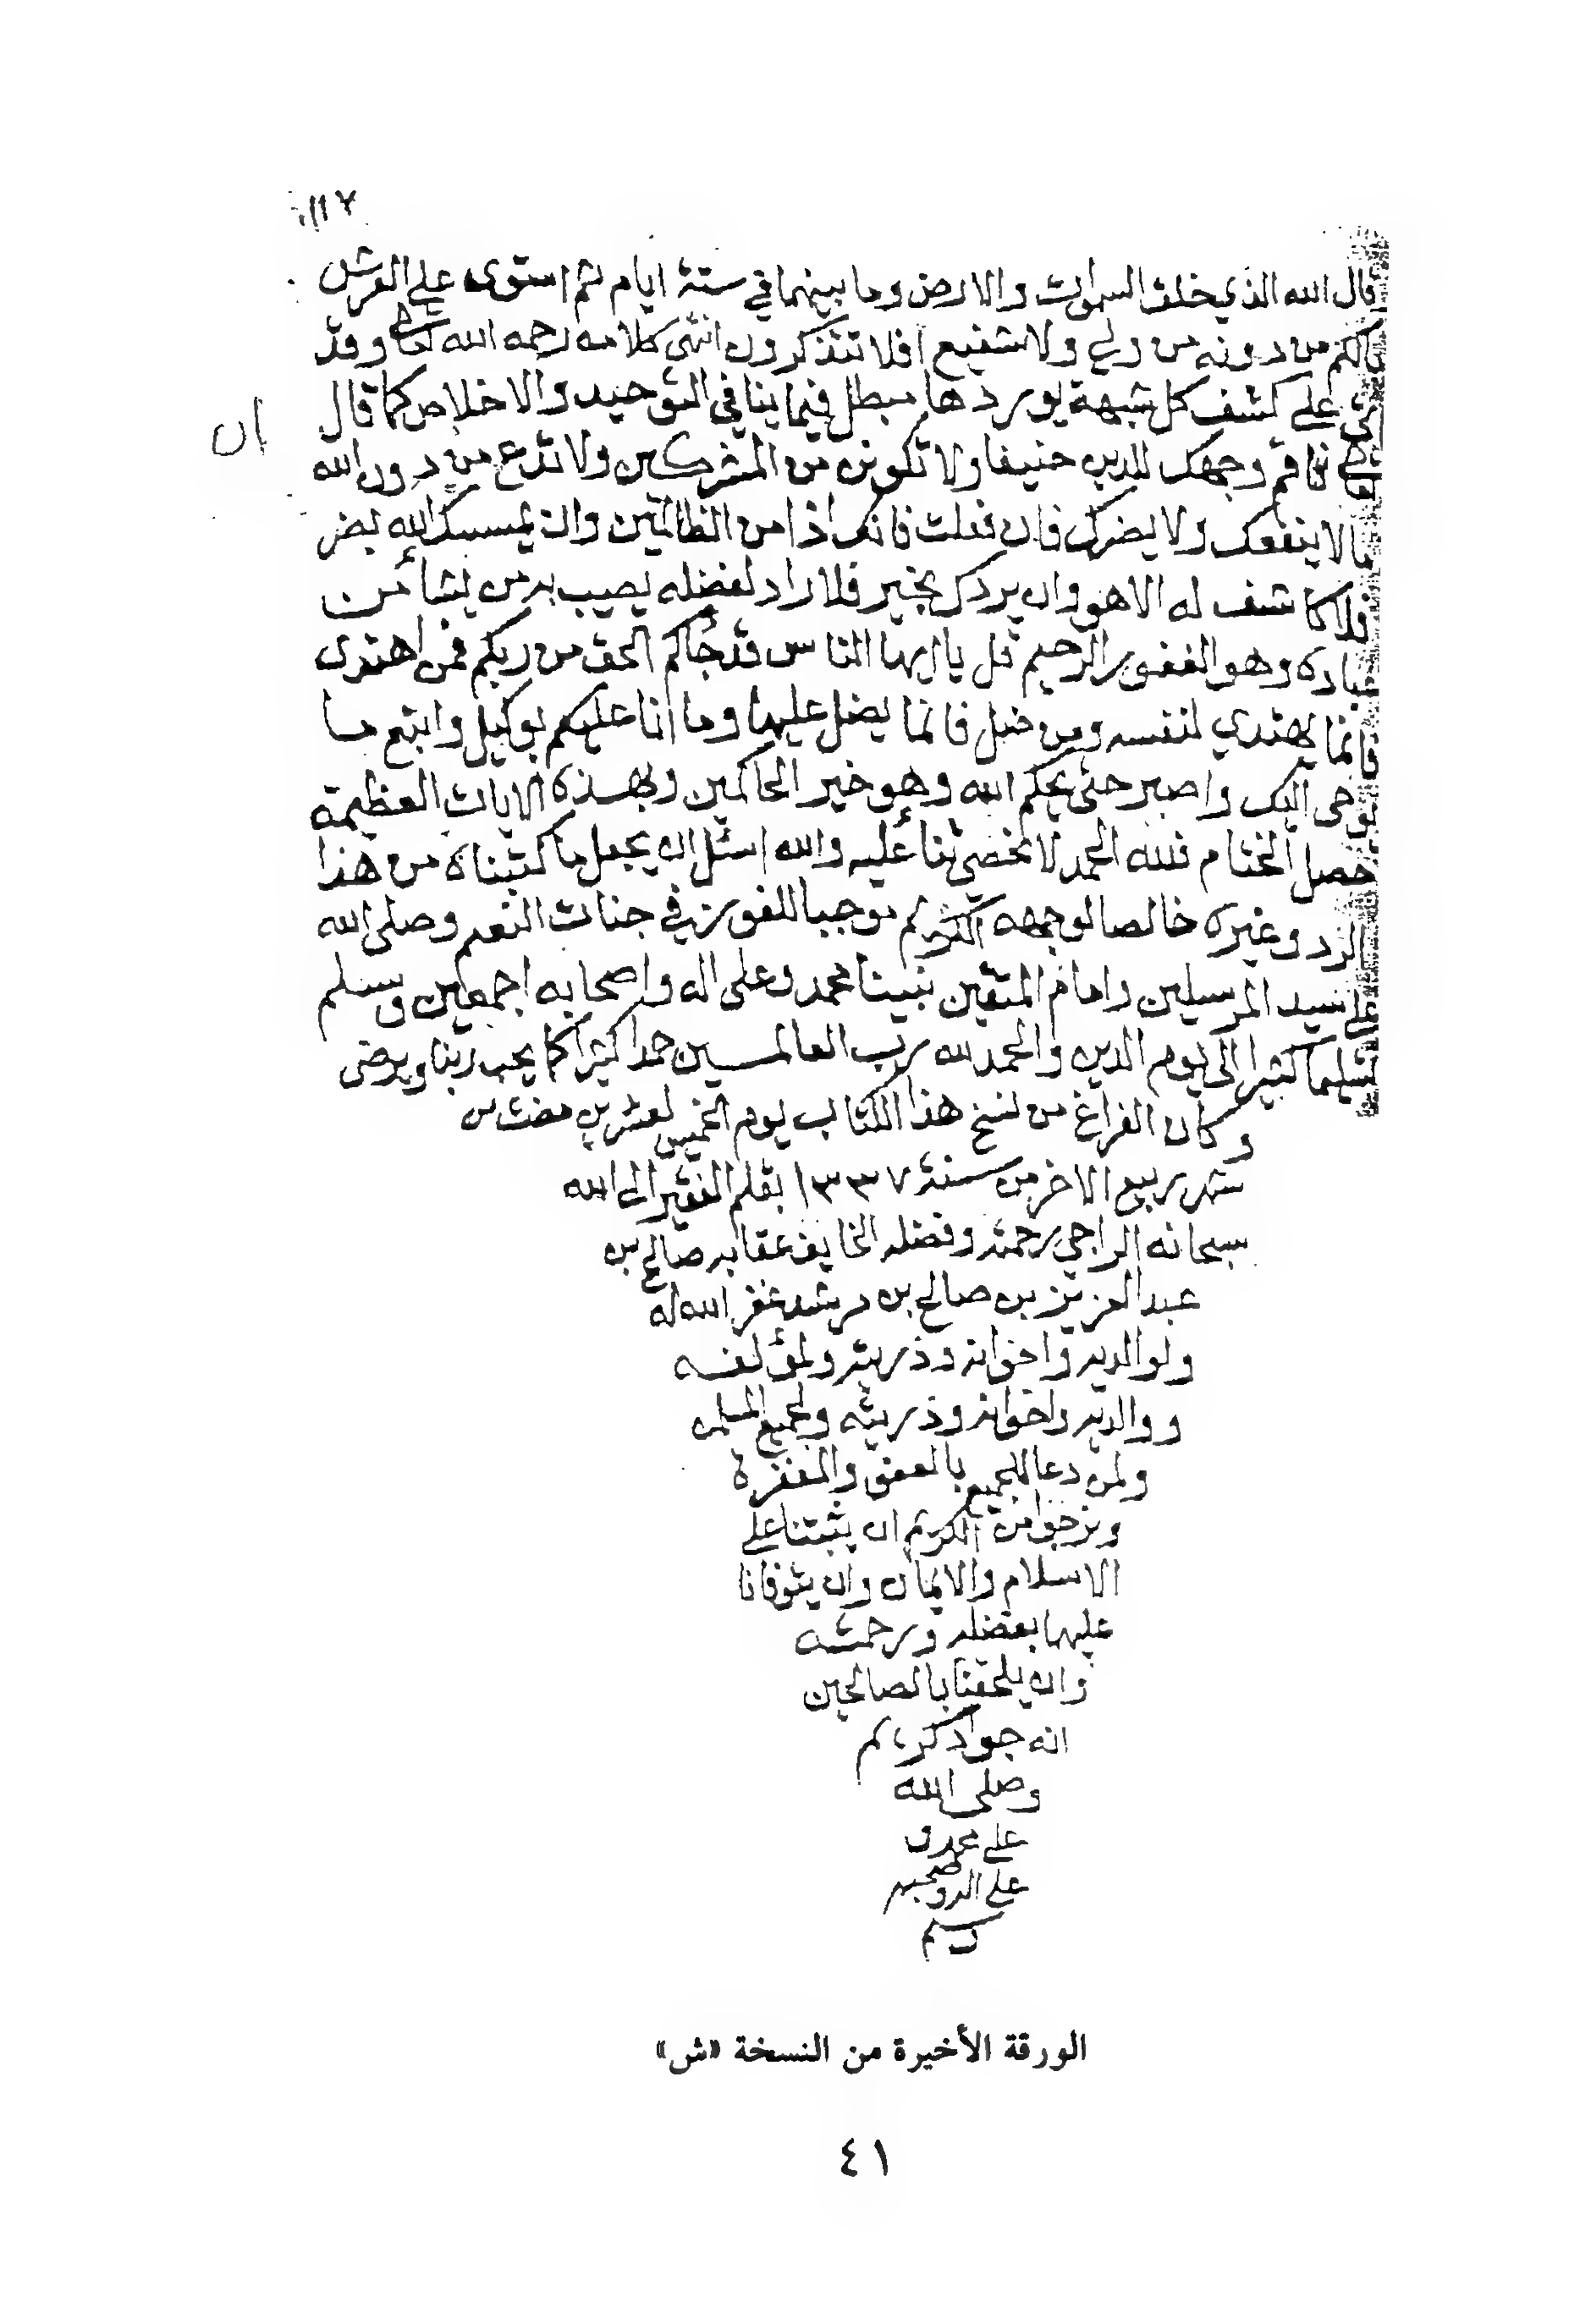 قال الله الذي خلق السموات والارض وما بينهما في ستة ايام ثم استوى على العرش
مالكم من دونه من ولي ولا شفيع افلا تتذكرون انتهى كلامه رحمه الله تعالى وقد
على كشف كل شبهة يوردها مبطل فيما ينافي التوحيد والاخلاص كما قال
ان
فاقم وجهك للدين حنيفا ولا تكونن من المشركين ولا تدع من دون الله
مالا ينفعك ولا يضرك فان فعلت فانك اذا من الظالمين وان يمسسك الله بضر
فلا كاشف له الا هو وان يردك بخير فلا راد لفضله يصيب به من يشأ من
عباده وهو الغفور الرحيم قل يا ايها الناس قد جأكم الحق من ربكم فمن اهتدى
فانما يهتدي لنفسه ومن ضل فانما يضل عليها وما انا عليكم بوكيل واتبع ما
يوحى اليك واصبر حتى يحكم الله وهو خير الحاكمين وبهذه الايات العظيمة
حصل الختام فلله الحمد لا نحصي ثنأ عليه والله اسئل ان يجعل ما كتبناه من هذا
الرد وغيره خالصا لوجهه الكريم موجبا للفوز في جنات النعيم وصلى الله
على سيد المرسلين وامام المتقين نبينا محمد وعلى اله واصحابه اجمعين وسلم
تسليما كثيرا الى يوم الدين والحمد لله رب العالمين حمدا كثيرا كما يحب ربنا ويرضى
وكان الفراغ من نسخ هذا الكتاب يوم الخميس لعشرين مضت من
شهر ربيع الاخر من سنة ١٣٣٧ بقلم الفقير الى الله
سبحانه الراجي رحمته وفضله الخايف عقابه صالح بن
عبد العزيز بن صالح بن مرشد غفر الله له
ولوالديه واخوانه وذريته ولمؤلفه
ووالديه واخوانه وذريته ولجميع المسلمين
ولمن دعا للجميع بالعفو والمغفرة
ونرجوا من الكريم ان يثبتنا على
الاسلام والايمان وان يتوفانا
عليهما بفضله ورحمته
وان يلحقنا بالصالحين
انه جواد كريم
وصلى الله
على محمد و
على اله وصحبه
وسلم
الورقة الأخيرة من النسخة «ش»
٤١